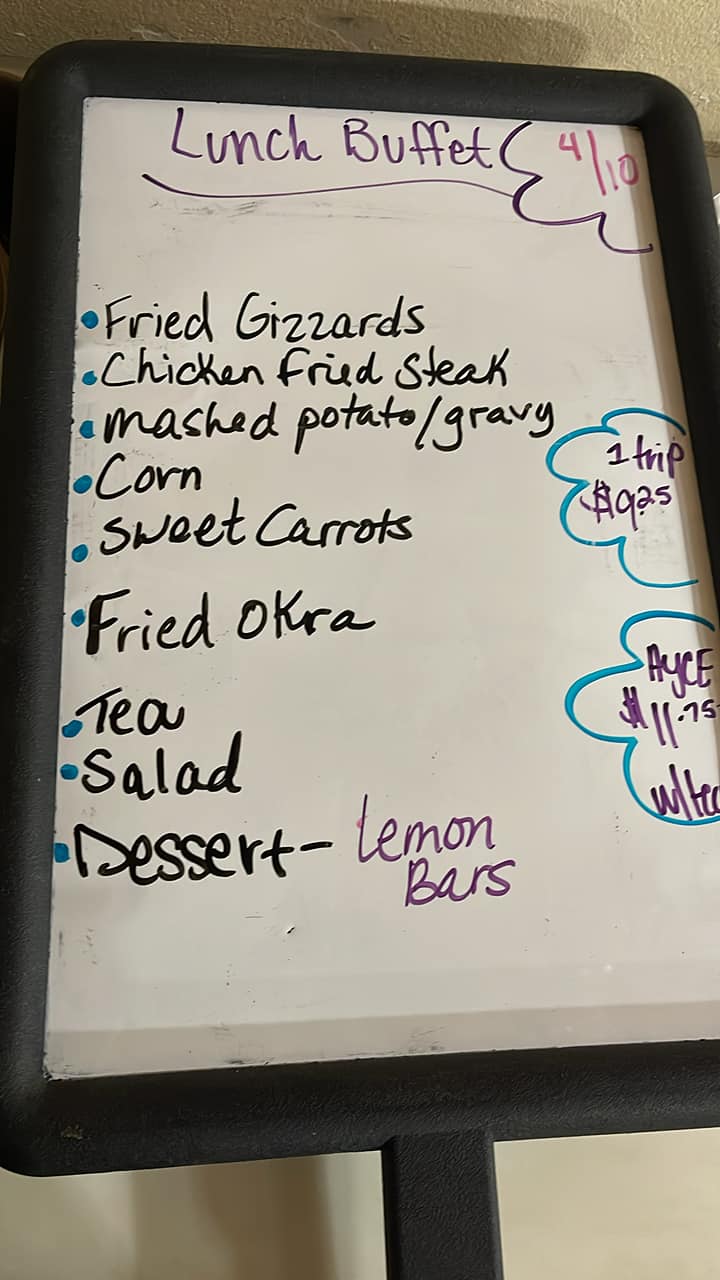 Lunch Buffet 4/10
• Fried Gizzards
• Chicken fried Steak
• mashed potato/gravy
• Corn
• Sweet Carrots
• Fried Okra
• Tea
• Salad
• Dessert - Lemon
Bars
1 trip
$9.25
AYCE
$11.75